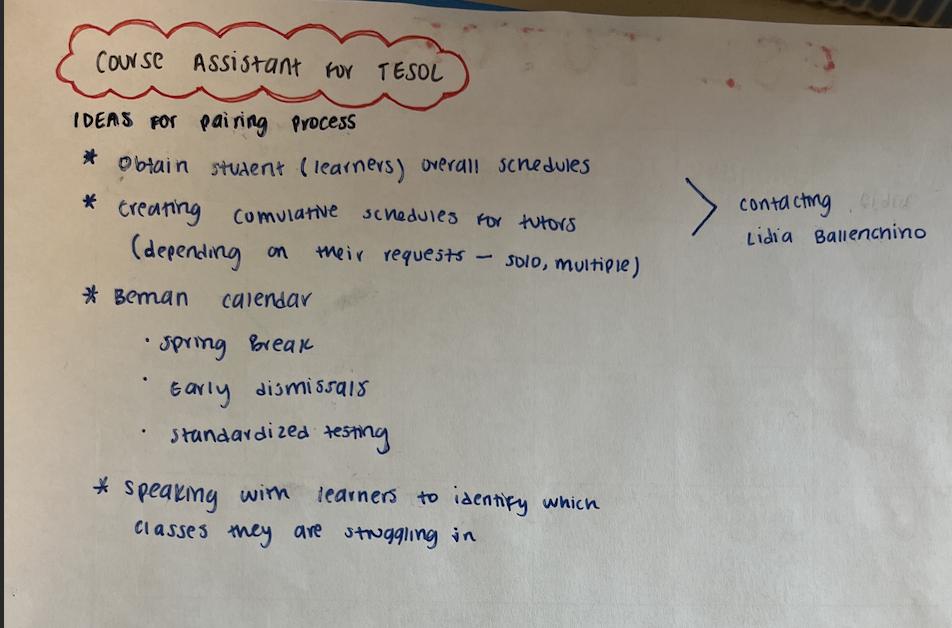 Course Assistant for TESOL
IDEAS for pairing process
* Obtain student (learners) overall schedules
* Creating comulative schedules for tutors
(depending on their requests - solo, multiple)
> contacting
Lidia Ballenchino
* Beman calendar
· Spring Break
· Early dismissals
· standardized testing
* Speaking with learners to identify which
classes they are struggling in